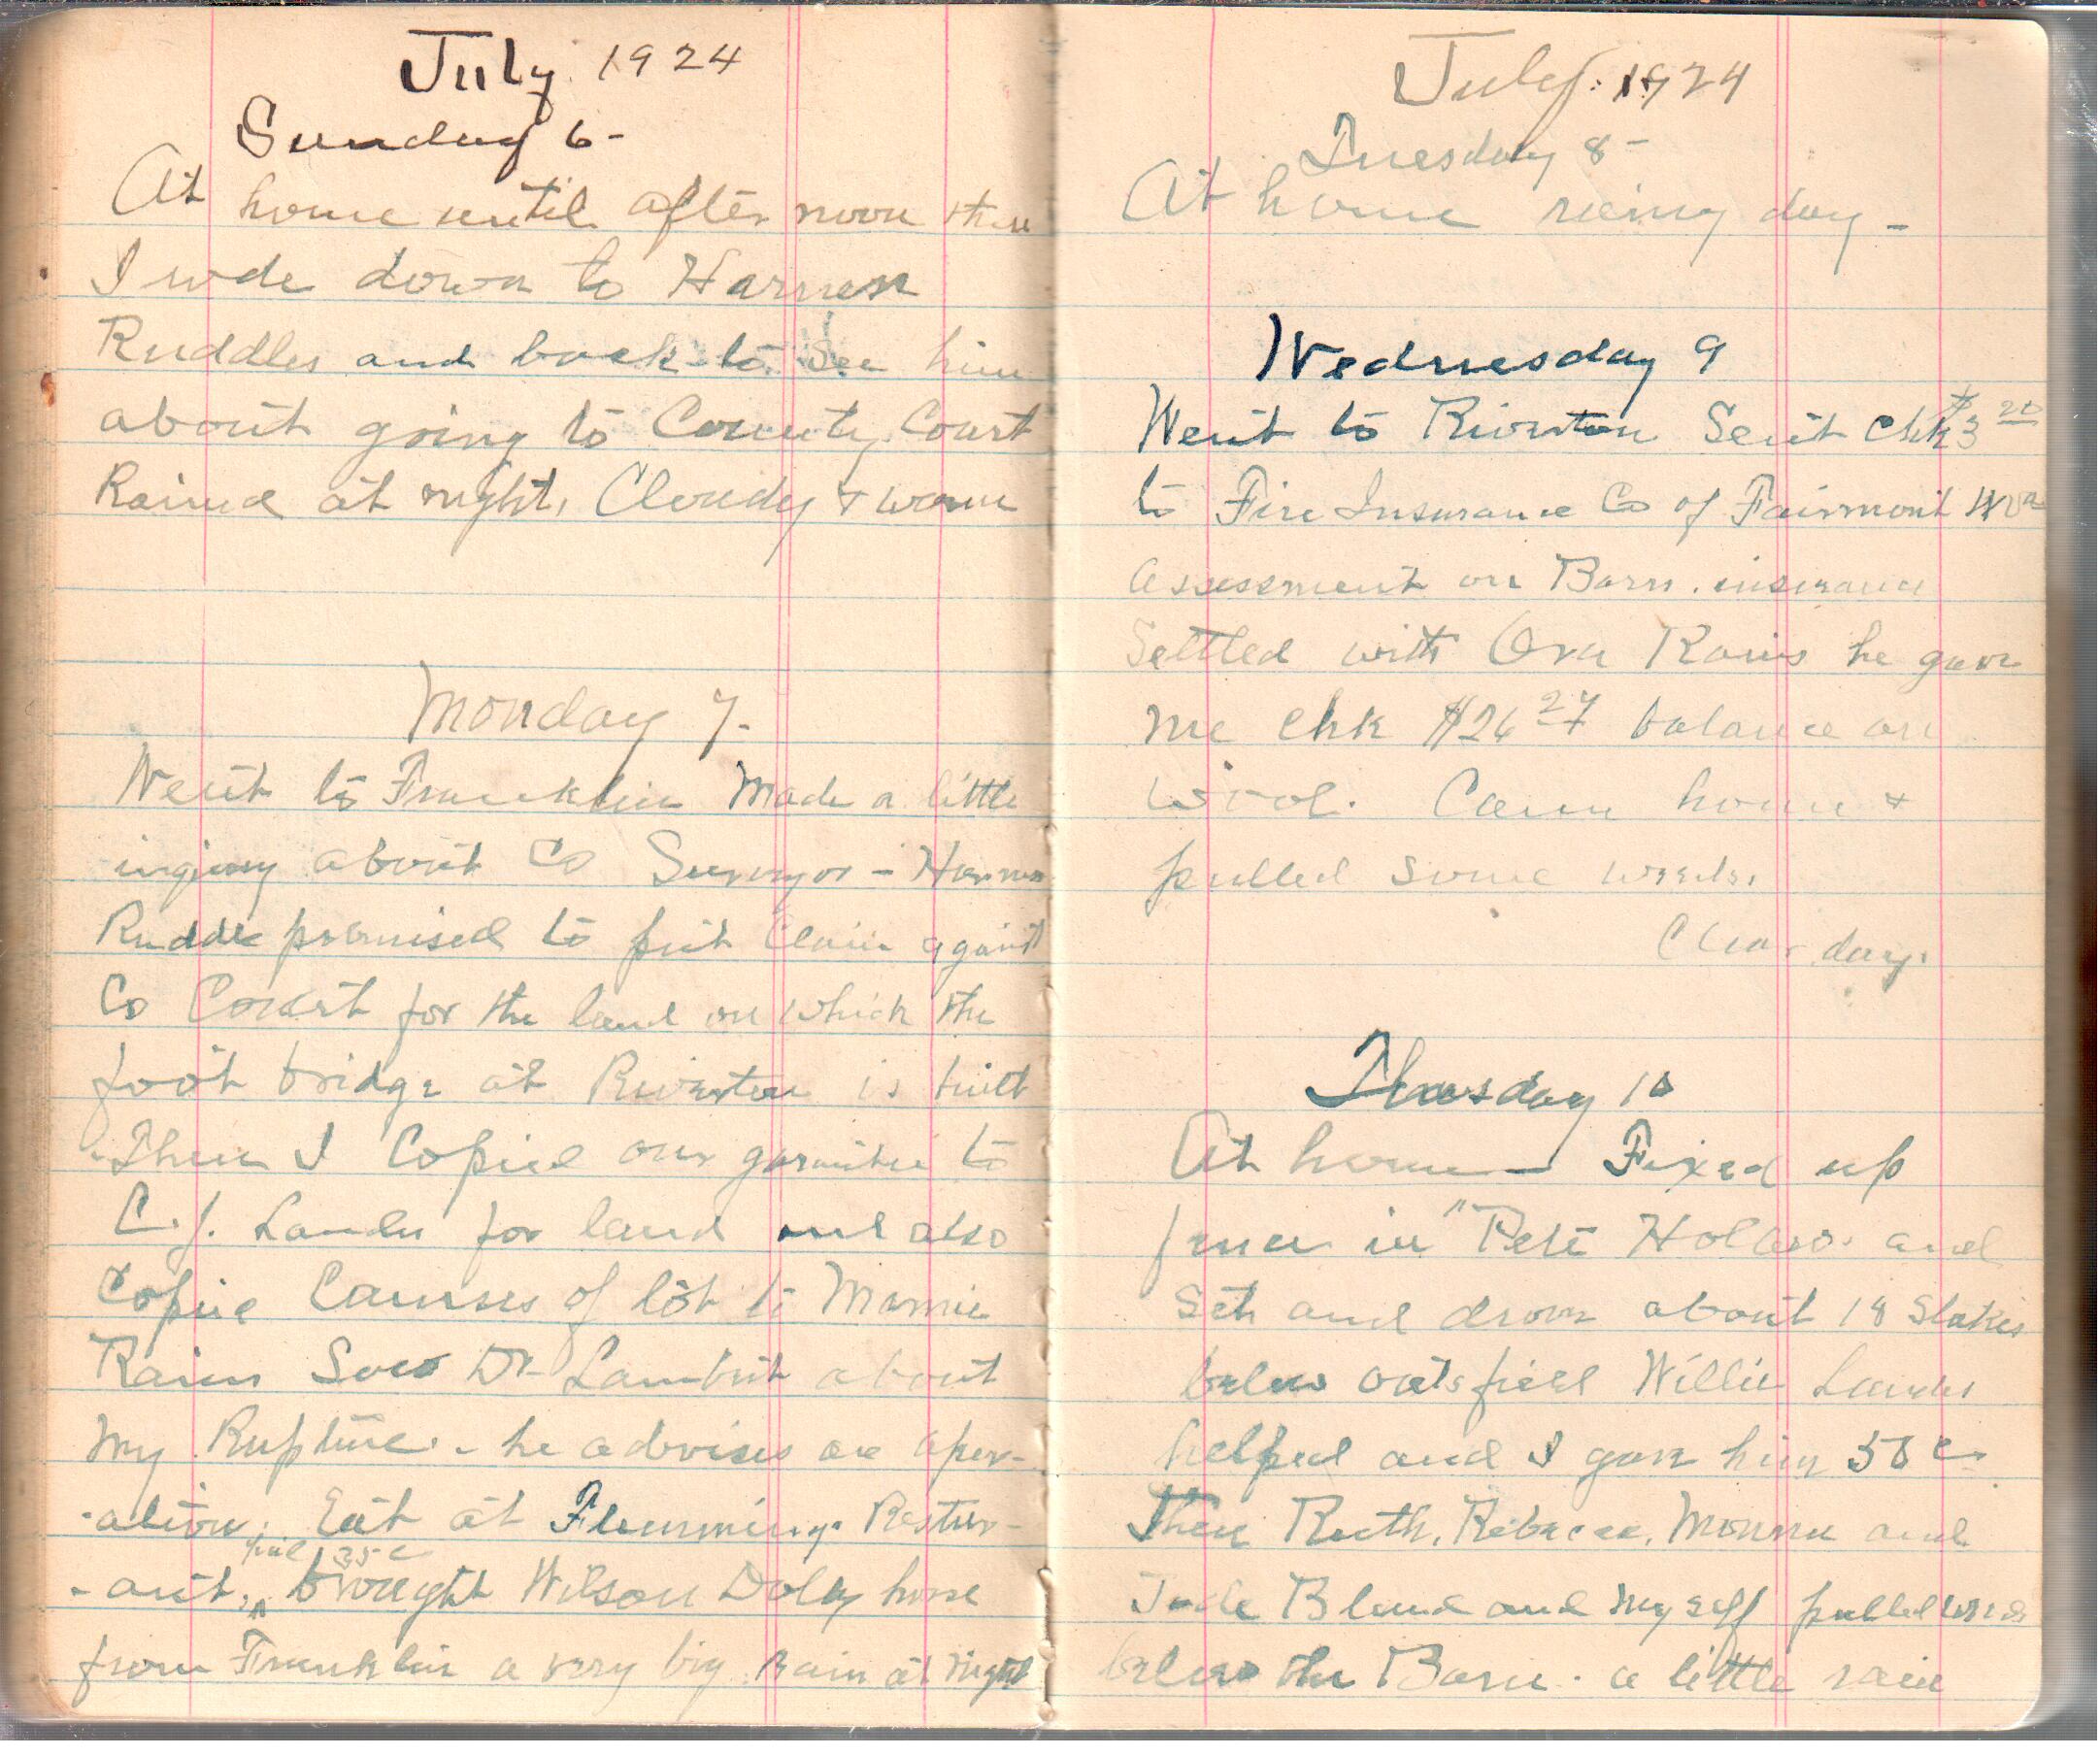 July 1924
Sunday 6-
At home until after noon then
I rode down to Harness
Ruddles and back to see him
about going to County Court
Rained at night, Cloudy & warm
Monday 7-
Went to Franklin Made a little
inqury about Co Surveyor - Harness
Ruddle promised to put Claim against
Co Court for the land on which the
foot bridge at Riverton is built
Then I Copied our garantee to
C. J. for land and also
Copied Courses of lot to Mamie
Raines Saw Dr Lambert about
my Rupture. - he advises an oper-
-ation. Eat at Flemming Restur-
paid 35 c
-ant. brought Wilson Dolly home
from Franklin a very big Rain at night
July. 1924
Tuesday 8-
At home rainy day -
Wednesday 9
Went to Riverton Sent Chk $3 20
to Fire Insurance Co of Fairmont W Va
assessment on Barn. insurance
Settled with Ona Rains he gave
me Chk $26 27 balance on
wool. Came home &
pulled some weeds.
Clear day.
Thursday 10
At home - Fixed up
fence in "Pete Hollow. and
set and drove about 18 Stakes
below oats field Willie
helped and I gave him 50 c
Then Ruth, Rebecca, and
Jude Bland and my self pulled weeds
below the Barn. a little rain